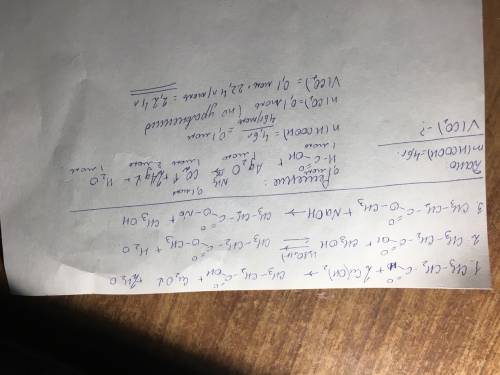 1. CH₃-CH₂-C(=O)-H + 2Cu(OH)₂ → CH₃-CH₂-C(=O)-OH + Cu₂O↓ + 2H₂O
2. CH₃-CH₂-C(=O)-OH + CH₃OH ⇌ (H₂SO₄(к)) CH₃-CH₂-C(=O)-O-CH₃ + H₂O
3. CH₃-CH₂-C(=O)-O-CH₃ + NaOH → CH₃-CH₂-C(=O)-O-Na + CH₃OH
Дано
m(HCOOH)=4,6г.
V(CO₂)-?
Решение:
0,1моль 0,1моль
H-C(=O)-OH + Ag₂O →(NH₃) CO₂↑ + 2Ag↓ + H₂O
1 моль 1 моль 1 моль 2 моль 1 моль
n(HCOOH) = 4,6г / 46г/моль = 0,1 моль
n(CO₂)=0,1моль (по уравнению)
V(CO₂) = 0,1 моль · 22,4 л/моль = 2,24л